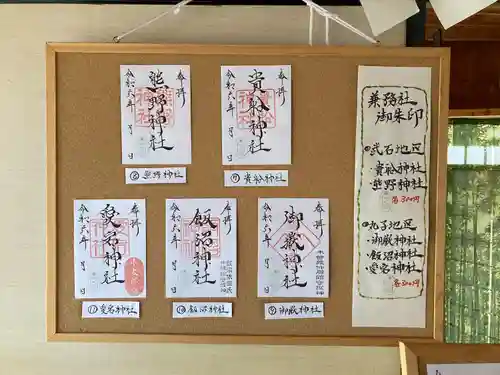 奉拝
熊野神社
令和六年 月 日
⑥熊野神社
奉拝
貴船神社
令和六年 月 日
⑦貴船神社
奉拝
愛宕神社
令和六年 月 日
⑪愛宕神社
奉拝
飯沼神社
令和六年 月 日
⑩飯沼神社
奉拝
御嶽神社
令和六年 月 日
⑨御嶽神社
兼務社
御朱印
●武石地区
・貴船神社
・熊野神社
各300円
●丸子地区
・御嶽神社
・飯沼神社
・愛宕神社
各300円